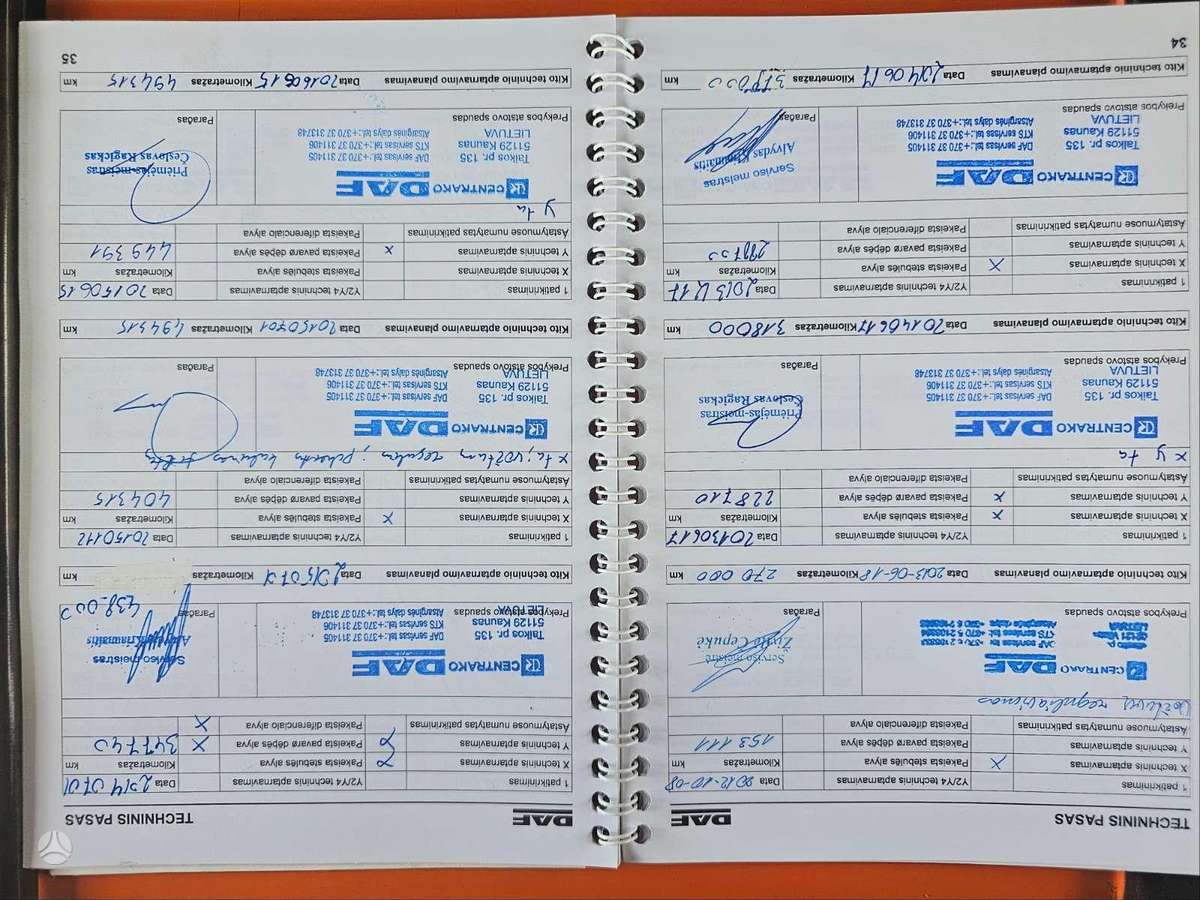 TECHNINIS PASAS DAF
1 patikrinimas Y2/Y4 techninis aptarnavimas Data 2012-10-08
X techninis aptarnavimas X Pakeista stebulės alyva Kilometražas km
Y techninis aptarnavimas Pakeista pavarų dėpės alyva 153111
Astatymuose numatytas patikrinimas Pakeista diferencialo alyva
reguliavimas
CENTRAKO DAF
Serviso meistrė
Prekybos atstovo spaudas Parašas
Kito techninio aptarnavimo planavimas Data 2013-06-18 Kilometražas 270 000 km
1 patikrinimas Y2/Y4 techninis aptarnavimas Data 20130617
X techninis aptarnavimas x Pakeista stebulės alyva Kilometražas km
Y techninis aptarnavimas x Pakeista pavarų dėpės alyva 228710
Astatymuose numatytas patikrinimas Pakeista diferencialo alyva
x y ta
CENTRAKO DAF
Taikos pr. 135 DAF servisas tel.:+370 37 311405
51129 Kaunas KTS servisas tel.:+370 37 311406
LIETUVA Atsarginės dalys tel.:+370 37 313748
Priėmėjas-meistras
Česlovas Ragickas
Prekybos atstovo spaudas Parašas
Kito techninio aptarnavimo planavimas Data 20140617 Kilometražas 318000 km
1 patikrinimas Y2/Y4 techninis aptarnavimas Data 2013 12 17
X techninis aptarnavimas X Pakeista stebulės alyva Kilometražas km
Y techninis aptarnavimas Pakeista pavarų dėpės alyva
Astatymuose numatytas patikrinimas Pakeista diferencialo alyva
CENTRAKO DAF
Taikos pr. 135 DAF servisas tel.:+370 37 311405
51129 Kaunas KTS servisas tel.:+370 37 311406
LIETUVA Atsarginės dalys tel.:+370 37 313748
Serviso meistras
Alvydas Kraunaitis
Prekybos atstovo spaudas Parašas
Kito techninio aptarnavimo planavimas Data 20140617 Kilometražas km
34
DAF TECHNINIS PASAS
1 patikrinimas Y2/Y4 techninis aptarnavimas Data 2014 07 01
X techninis aptarnavimas Pakeista stebulės alyva Kilometražas km
Y techninis aptarnavimas Pakeista pavarų dėpės alyva X 347740
Astatymuose numatytas patikrinimas Pakeista diferencialo alyva X
CENTRAKO DAF
Taikos pr. 135 DAF servisas tel.:+370 37 311405
51129 Kaunas KTS servisas tel.:+370 37 311406
LIETUVA Atsarginės dalys tel.:+370 37 313748
Serviso meistras
Alvydas Kraunaitis
Prekybos atstovo spaudas Parašas 438000
Kito techninio aptarnavimo planavimas Data 2015 07 01 Kilometražas km
1 patikrinimas Y2/Y4 techninis aptarnavimas Data 20150112
X techninis aptarnavimas x Pakeista stebulės alyva Kilometražas km
Y techninis aptarnavimas Pakeista pavarų dėpės alyva 404315
Astatymuose numatytas patikrinimas Pakeista diferencialo alyva
x ta;
CENTRAKO DAF
Taikos pr. 135 DAF servisas tel.:+370 37 311405
51129 Kaunas KTS servisas tel.:+370 37 311406
LIETUVA Atsarginės dalys tel.:+370 37 313748
Prekybos atstovo spaudas Parašas
Kito techninio aptarnavimo planavimas Data 20150701 Kilometražas 494315 km
1 patikrinimas Y2/Y4 techninis aptarnavimas Data 20150615
X techninis aptarnavimas Pakeista stebulės alyva Kilometražas km
Y techninis aptarnavimas x Pakeista pavarų dėpės alyva 449391
Astatymuose numatytas patikrinimas Pakeista diferencialo alyva
y ta
CENTRAKO DAF
Taikos pr. 135 DAF servisas tel.:+370 37 311405
51129 Kaunas KTS servisas tel.:+370 37 311406
LIETUVA Atsarginės dalys tel.:+370 37 313748
Priėmėjas-meistras
Česlovas Ragickas
Prekybos atstovo spaudas Parašas
Kito techninio aptarnavimo planavimas Data 20160615 Kilometražas 494315 km
35